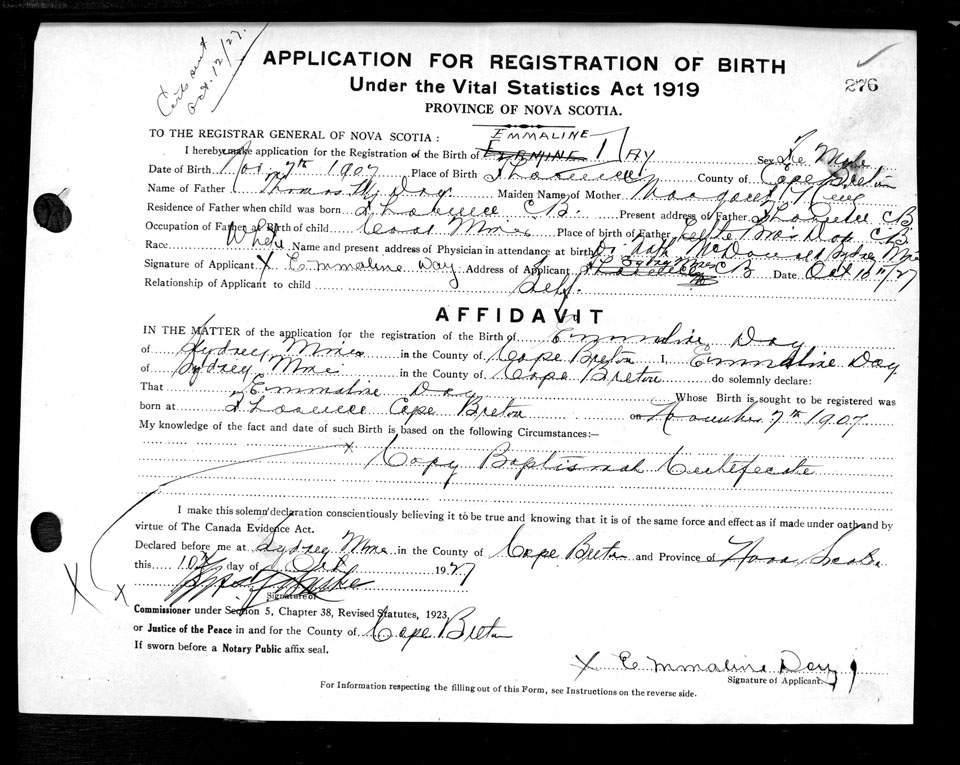 Certs sent
Oct. 12/27.
APPLICATION FOR REGISTRATION OF BIRTH
276
Under the Vital Statistics Act 1919
PROVINCE OF NOVA SCOTIA.
TO THE REGISTRAR GENERAL OF NOVA SCOTIA : EMMALINE
I hereby make application for the Registration of the Birth of DAY Sex Fe Male
Date of Birth Nov 7th 1907 Place of Birth Florence County of Cape Breton
Name of Father Thomas Day Maiden Name of Mother Margaret
Residence of Father when child was born Florence CB. Present address of Father Florence CB
Occupation of Father at Birth of child Coal Mine Place of birth of Father CB.
Race White Name and present address of Physician in attendance at birth Dr McDonald Sydney Mines
Signature of Applicant X Emmaline Day Address of Applicant Sydney Mines CB Date Oct 10th/27
Relationship of Applicant to child Self
AFFIDAVIT
IN THE MATTER of the application for the registration of the Birth of Emmaline Day
of Sydney Mines in the County of Cape Breton I, Emmaline Day
of Sydney Mines in the County of Cape Breton do solemnly declare:
That Emmaline Day Whose Birth is sought to be registered was
born at Florence Cape Breton on November 7th 1907
My knowledge of the fact and date of such Birth is based on the following Circumstances:—
X Copy Baptismal Certificate
I make this solemn declaration conscientiously believing it to be true and knowing that it is of the same force and effect as if made under oath and by
virtue of The Canada Evidence Act.
Declared before me at Sydney Mines in the County of Cape Breton and Province of Nova Scotia
this 10th day of Oct 1927
X X
Signature of
Commissioner under Section 5, Chapter 38, Revised Statutes, 1923,
or Justice of the Peace in and for the County of Cape Breton
If sworn before a Notary Public affix seal.
X Emmaline Day
Signature of Applicant.
For Information respecting the filling out of this Form, see Instructions on the reverse side.